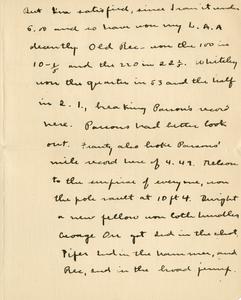 But I'm satisfied, since I ran it under
5.00 and so have won my L.A.A
decently. Old Rec. won the 100 in
10-⅖ and the 220 in 22½. Whitely
won the quarter in 53 and the half
in 2.1, breaking Parson's record
here. Parsons had better look
out. Frantz also broke Parsons'
mile record here of 4.49. Nelson
to the surprise of everyone, won
the pole vault at 10 ft 4. Dwight
a new fellow won both hurdles
George Orr got 2nd in the shot,
Pifer 2nd in the hammer, and
Rec, 2nd in the broad jump.